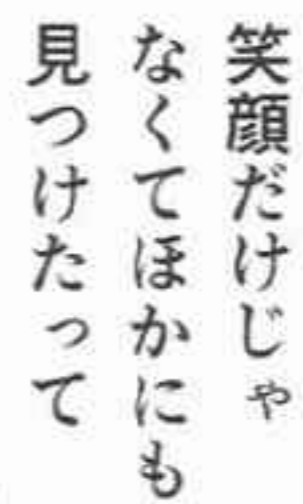 笑顔だけじゃ
なくてほかにも
見つけたって